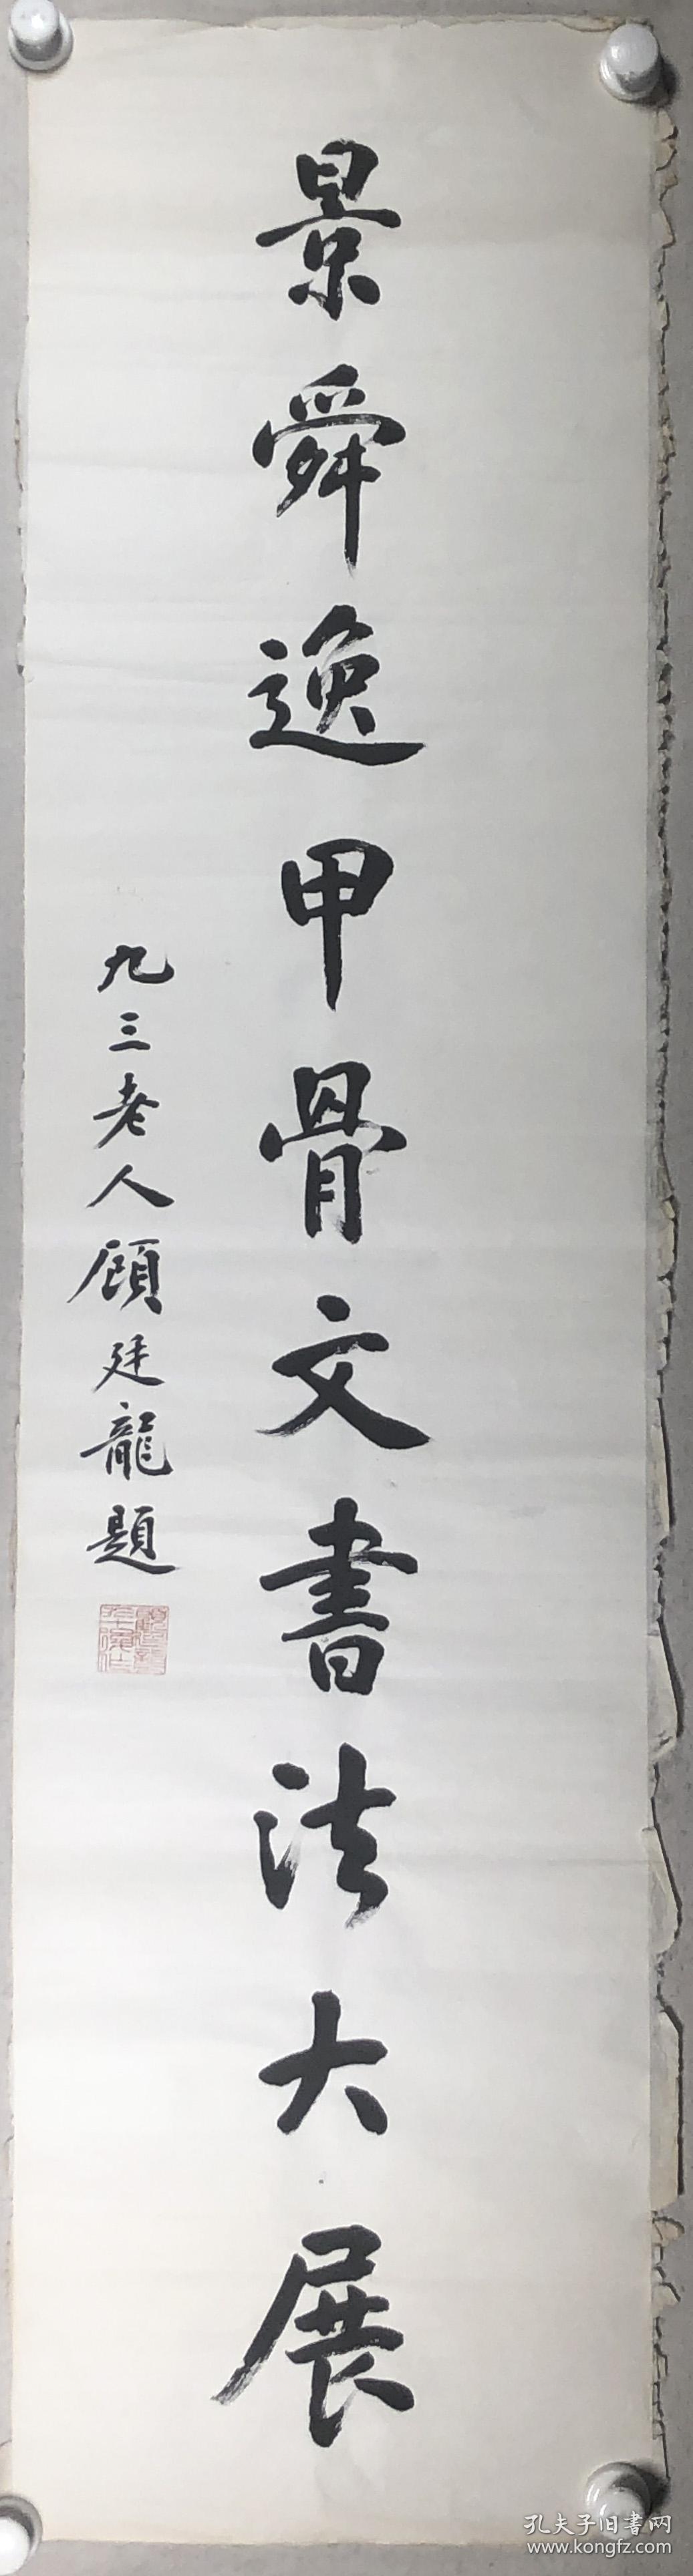 景舜逸甲骨文書法大展
九三老人顧廷龍題
孔夫子旧書网
www.kongfz.com